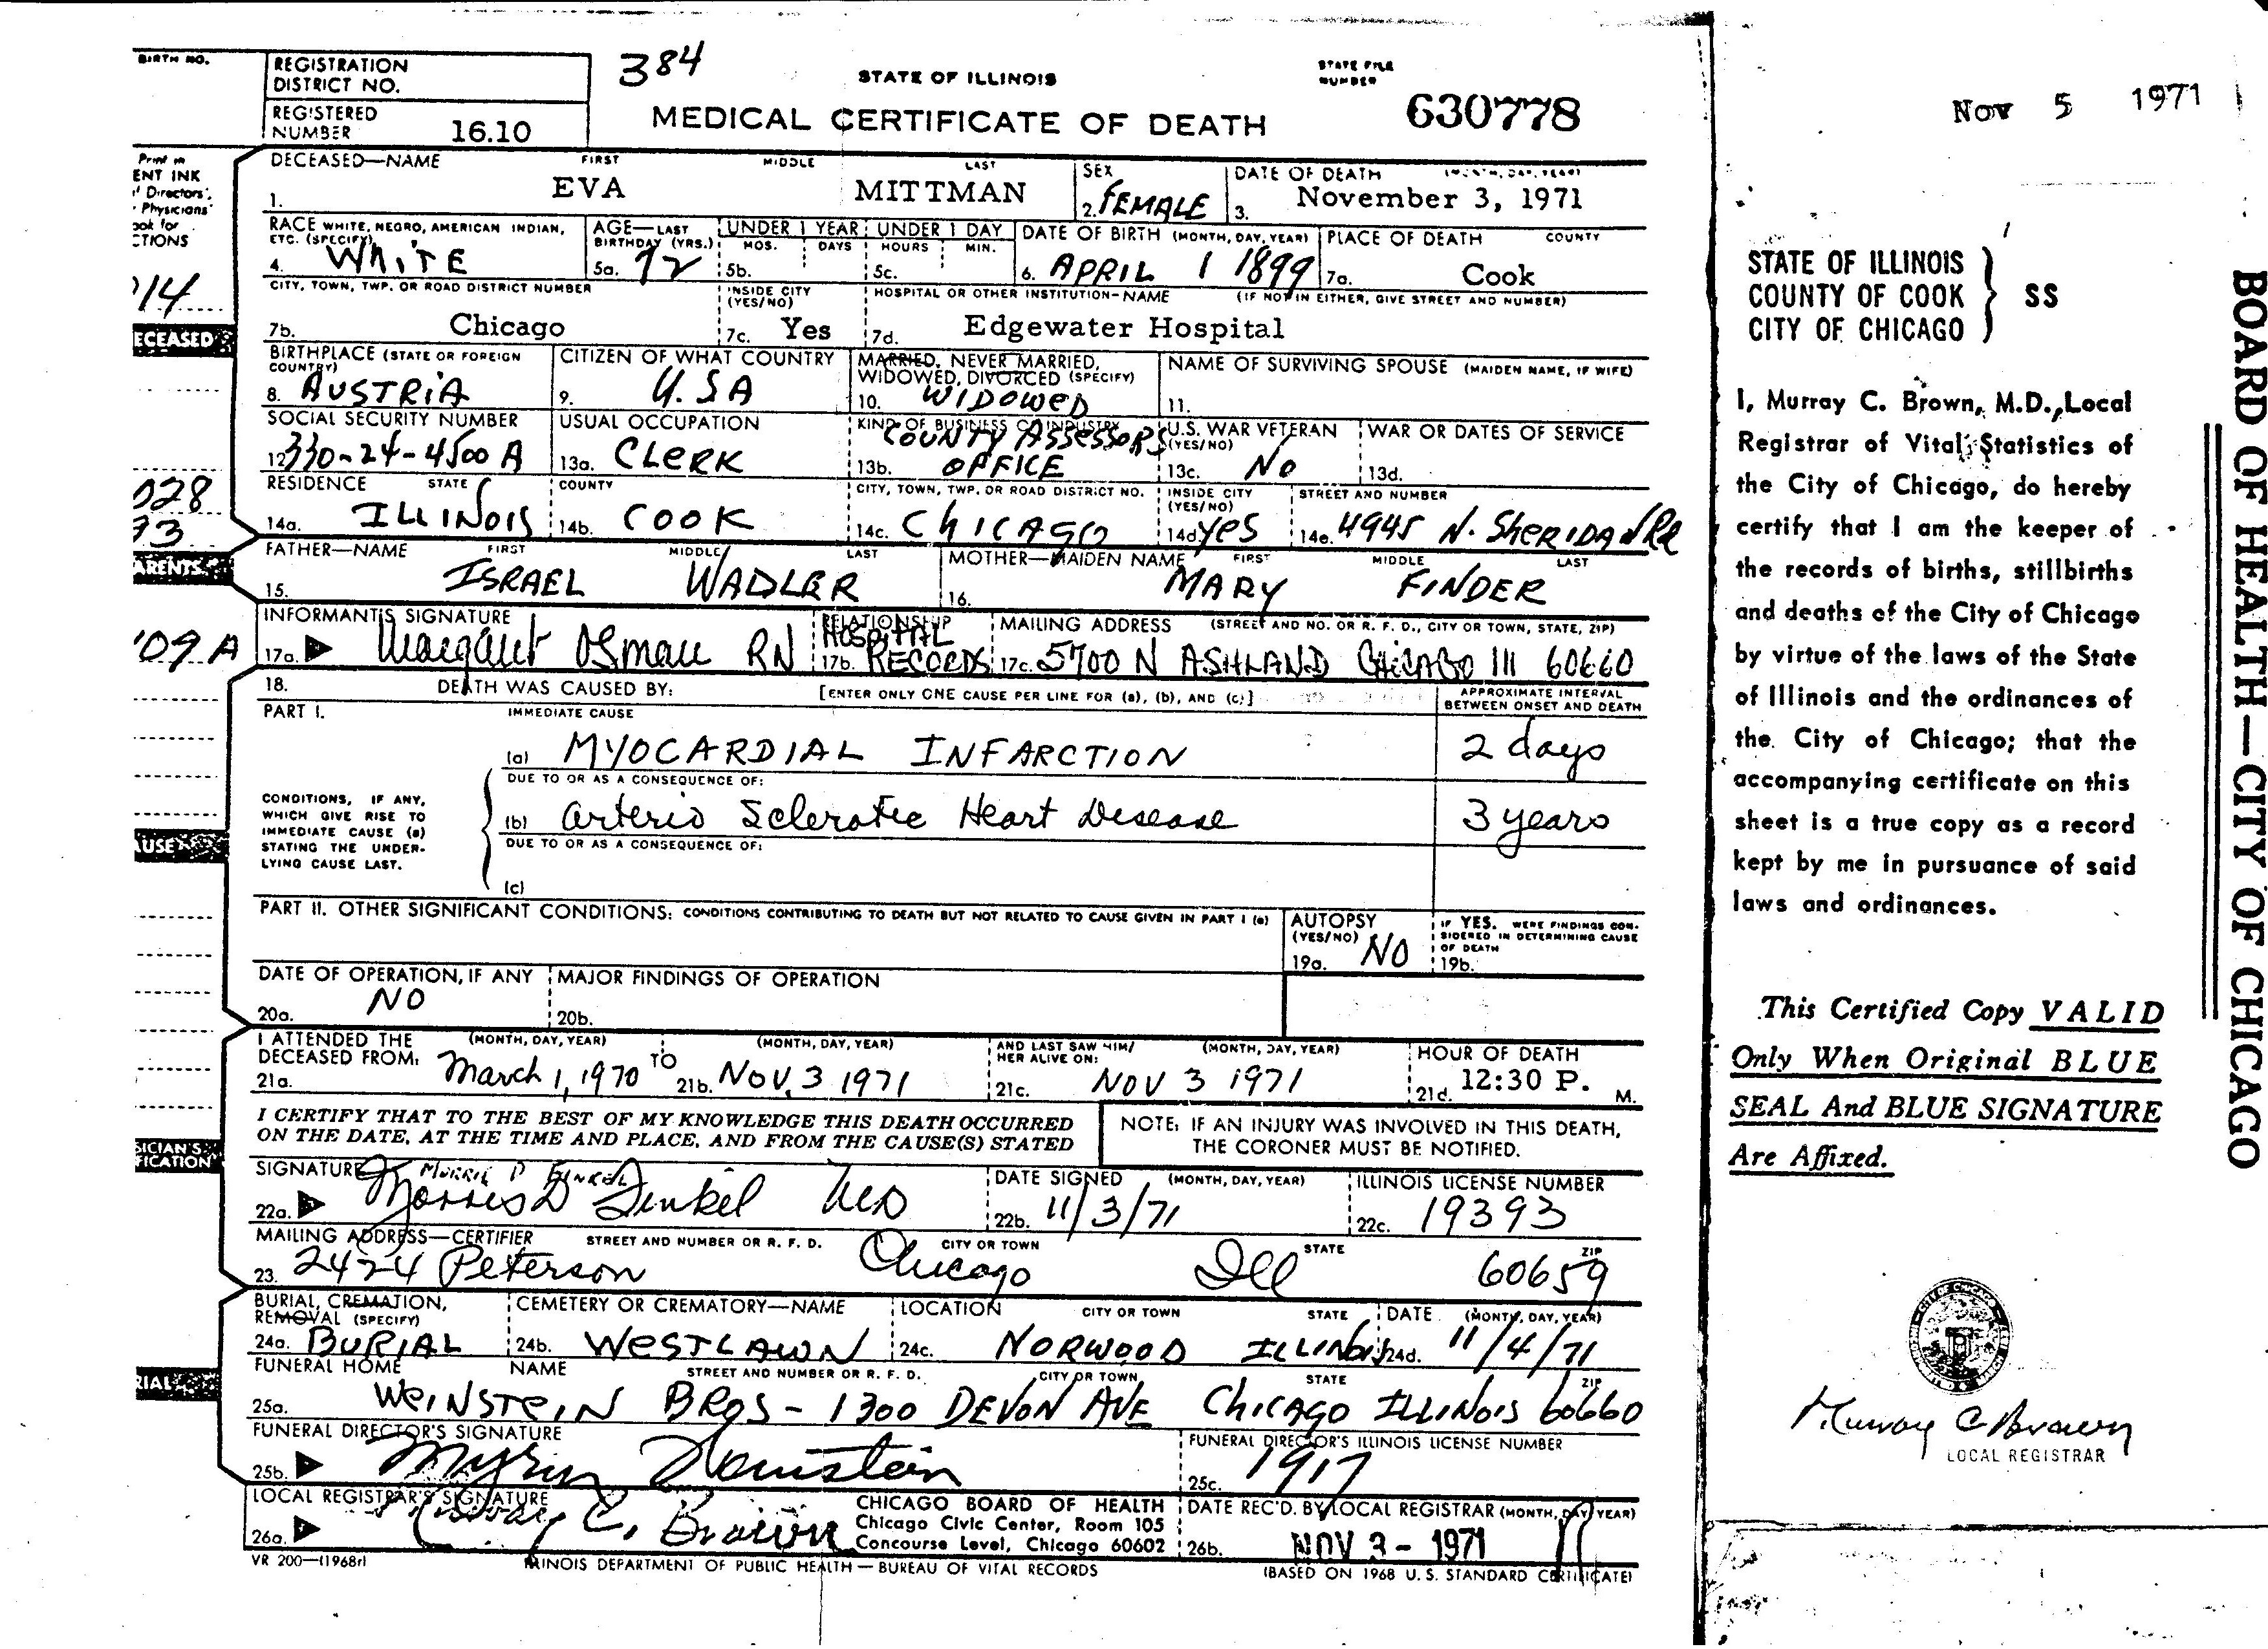 BIRTH NO.
REGISTRATION DISTRICT NO.
384
STATE OF ILLINOIS
STATE FILE NUMBER
REGISTERED NUMBER 16.10
MEDICAL CERTIFICATE OF DEATH
630778
Print in
ENT INK
Directors',
Physicians'
ook for
CTIONS
DECEASED—NAME FIRST MIDDLE LAST
1. EVA MITTMAN
SEX
2. FEMALE
DATE OF DEATH (MONTH, DAY, YEAR)
3. November 3, 1971
RACE WHITE, NEGRO, AMERICAN INDIAN, ETC. (SPECIFY)
4. WHITE
AGE—LAST BIRTHDAY (YRS.)
5a. 72
UNDER 1 YEAR MOS. DAYS
5b.
UNDER 1 DAY HOURS MIN.
5c.
DATE OF BIRTH (MONTH, DAY, YEAR)
6. APRIL 1 1899
PLACE OF DEATH COUNTY
7a. Cook
14
ECEASED
CITY, TOWN, TWP. OR ROAD DISTRICT NUMBER
7b. Chicago
INSIDE CITY (YES/NO)
7c. Yes
HOSPITAL OR OTHER INSTITUTION—NAME (IF NOT IN EITHER, GIVE STREET AND NUMBER)
7d. Edgewater Hospital
BIRTHPLACE (STATE OR FOREIGN COUNTRY)
8. AUSTRIA
CITIZEN OF WHAT COUNTRY
9. U.S A
MARRIED, NEVER MARRIED, WIDOWED, DIVORCED (SPECIFY)
10. WIDOWED
NAME OF SURVIVING SPOUSE (MAIDEN NAME, IF WIFE)
11.
SOCIAL SECURITY NUMBER
12. 330-24-4500 A
USUAL OCCUPATION
13a. CLERK
KIND OF BUSINESS OR INDUSTRY
13b. COUNTY ASSESSORS OFFICE
U.S. WAR VETERAN (YES/NO)
13c. No
WAR OR DATES OF SERVICE
13d.
028
93
RESIDENCE STATE
14a. ILLINOIS
COUNTY
14b. COOK
CITY, TOWN, TWP. OR ROAD DISTRICT NO.
14c. CHICAGO
INSIDE CITY (YES/NO)
14d. YES
STREET AND NUMBER
14e. 4945 N. SHERIDAN Rd
ARENTS
FATHER—NAME FIRST MIDDLE LAST
15. ISRAEL WADLER
MOTHER—MAIDEN NAME FIRST MIDDLE LAST
16. MARY FINDER
09 A
INFORMANT'S SIGNATURE
17a. Margaret Osman RN
RELATIONSHIP
17b. HOSPITAL RECORDS
MAILING ADDRESS (STREET AND NO. OR R. F. D., CITY OR TOWN, STATE, ZIP)
17c. 5700 N ASHLAND CHICAGO Ill 60660
18. DEATH WAS CAUSED BY: [ENTER ONLY ONE CAUSE PER LINE FOR (a), (b), AND (c)]
APPROXIMATE INTERVAL BETWEEN ONSET AND DEATH
PART I. IMMEDIATE CAUSE
(a) MYOCARDIAL INFARCTION 2 days
DUE TO OR AS A CONSEQUENCE OF:
CONDITIONS, IF ANY, WHICH GIVE RISE TO IMMEDIATE CAUSE (a) STATING THE UNDERLYING CAUSE LAST.
(b) Arterio Sclerotic Heart Disease 3 years
DUE TO OR AS A CONSEQUENCE OF:
(c)
AUSE
PART II. OTHER SIGNIFICANT CONDITIONS: CONDITIONS CONTRIBUTING TO DEATH BUT NOT RELATED TO CAUSE GIVEN IN PART I (a)
AUTOPSY (YES/NO)
19a. NO
IF YES, WERE FINDINGS CONSIDERED IN DETERMINING CAUSE OF DEATH
19b.
DATE OF OPERATION, IF ANY
20a. NO
MAJOR FINDINGS OF OPERATION
20b.
I ATTENDED THE DECEASED FROM: (MONTH, DAY, YEAR)
21a. March 1, 1970 TO
(MONTH, DAY, YEAR)
21b. NOV. 3 1971
AND LAST SAW HIM/HER ALIVE ON: (MONTH, DAY, YEAR)
21c. NOV 3 1971
HOUR OF DEATH
21d. 12:30 P. M.
I CERTIFY THAT TO THE BEST OF MY KNOWLEDGE THIS DEATH OCCURRED
ON THE DATE, AT THE TIME AND PLACE, AND FROM THE CAUSE(S) STATED
NOTE: IF AN INJURY WAS INVOLVED IN THIS DEATH,
THE CORONER MUST BE NOTIFIED.
SICIAN'S
FICATION
SIGNATURE MORRIS D FINKEL
22a. Morris D Finkel MD
DATE SIGNED (MONTH, DAY, YEAR)
22b. 11/3/71
ILLINOIS LICENSE NUMBER
22c. 19393
MAILING ADDRESS—CERTIFIER STREET AND NUMBER OR R. F. D. CITY OR TOWN STATE ZIP
23. 2424 Peterson Chicago Ill 60659
BURIAL, CREMATION, REMOVAL (SPECIFY)
24a. BURIAL
CEMETERY OR CREMATORY—NAME
24b. WESTLAWN
LOCATION CITY OR TOWN STATE
24c. NORWOOD ILLINOIS
DATE (MONTH, DAY, YEAR)
24d. 11/4/71
RIAL
FUNERAL HOME NAME STREET AND NUMBER OR R. F. D. CITY OR TOWN STATE ZIP
25a. WEINSTEIN BROS - 1300 DEVON AVE CHICAGO ILLINOIS 60660
FUNERAL DIRECTOR'S SIGNATURE
25b. Myrin Weinstein
FUNERAL DIRECTOR'S ILLINOIS LICENSE NUMBER
25c. 1917
LOCAL REGISTRAR'S SIGNATURE
26a. Murray C. Brown
CHICAGO BOARD OF HEALTH
Chicago Civic Center, Room 105
Concourse Level, Chicago 60602
DATE REC'D. BY LOCAL REGISTRAR (MONTH, DAY, YEAR)
26b. NOV 3 - 1971
VR 200—(1968r)
ILLINOIS DEPARTMENT OF PUBLIC HEALTH — BUREAU OF VITAL RECORDS
(BASED ON 1968 U. S. STANDARD CERTIFICATE)
Nov 5 1971
STATE OF ILLINOIS
COUNTY OF COOK SS
CITY OF CHICAGO
I, Murray C. Brown, M.D., Local
Registrar of Vital Statistics of
the City of Chicago, do hereby
certify that I am the keeper of
the records of births, stillbirths
and deaths of the City of Chicago
by virtue of the laws of the State
of Illinois and the ordinances of
the City of Chicago; that the
accompanying certificate on this
sheet is a true copy as a record
kept by me in pursuance of said
laws and ordinances.
This Certified Copy VALID
Only When Original BLUE
SEAL And BLUE SIGNATURE
Are Affixed.
Murray C Brown
LOCAL REGISTRAR
BOARD OF HEALTH—CITY OF CHICAGO